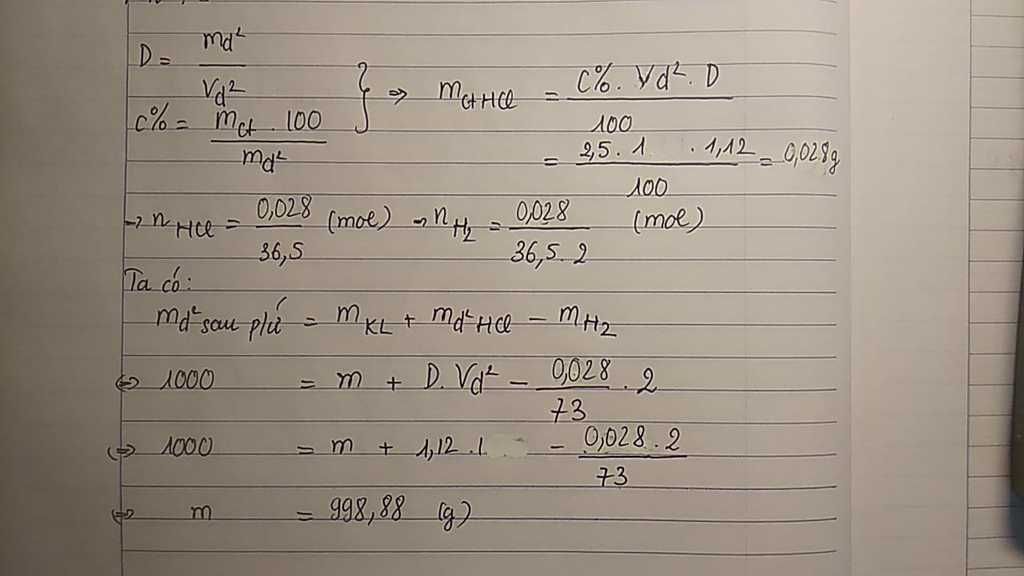 D = md²/Vd²
C% = mct . 100/md² } ⇒ mctHCl = C% . Vd² . D/100
= 2,5 . 1 . 1,12/100 = 0,028g
→ nHCl = 0,028/36,5 (mol) → nH₂ = 0,028/36,5 . 2 (mol)
Ta có:
md² sau pứ = mKL + md²HCl - mH₂
⇔ 1000 = m + D. Vd² - 0,028/73 . 2
⇔ 1000 = m + 1,12 . 1 - 0,028 . 2/73
⇔ m = 998,88 (g)